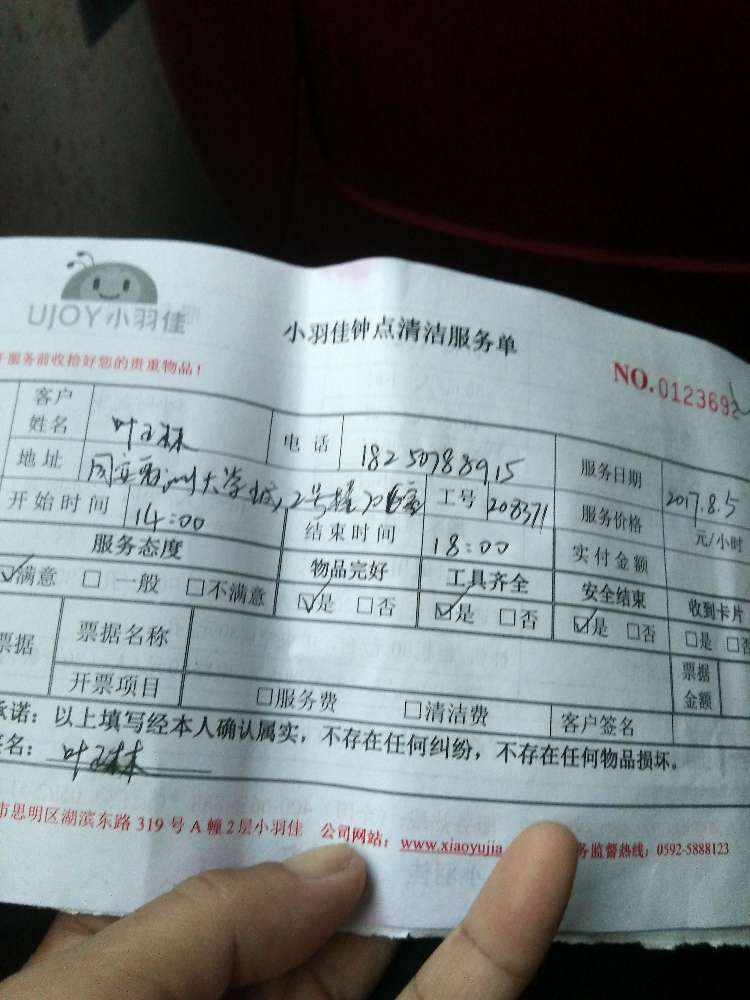 UJOY小羽佳
小羽佳钟点清洁服务单
服务前收拾好您的贵重物品！
NO.0123692
客户姓名 叶玉林 电话 18250788915 服务日期 2017.8.5
地址 大学城 2号楼 工号 208371 服务价格 元/小时
开始时间 14:00 结束时间 18:00 实付金额
服务态度 物品完好 工具齐全 安全结束 收到卡片
☑满意 □一般 □不满意 ☑是 □否 ☑是 □否 ☑是 □否 □是 □否
票据 票据名称 票据金额
开票项目 □服务费 □清洁费 客户签名
承诺：以上填写经本人确认属实，不存在任何纠纷，不存在任何物品损坏。
签名：叶玉林
市思明区湖滨东路 319 号 A 幢 2 层小羽佳 公司网站：www.xiaoyujia 务监督热线：0592-5888123